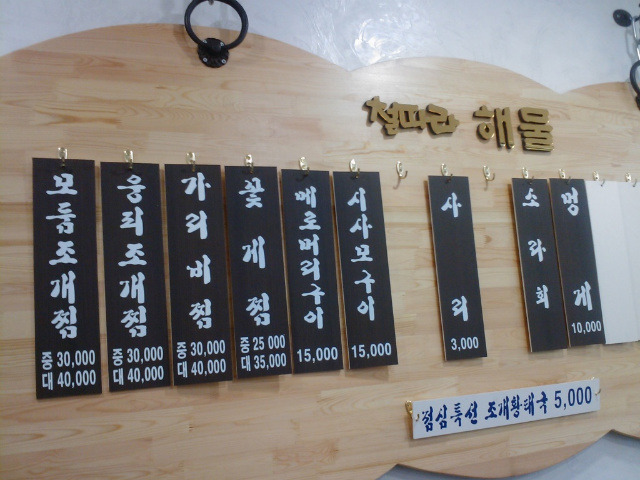 철따라 해물
모듬조개찜
중 30,000
대 40,000
웅피조개찜
중 30,000
대 40,000
가리비찜
중 30,000
대 40,000
꽃게찜
중 25,000
대 35,000
메로머리구이
15,000
시사모구이
15,000
사리
3,000
소라회
멍게
10,000
점심특선 조개황태국 5,000